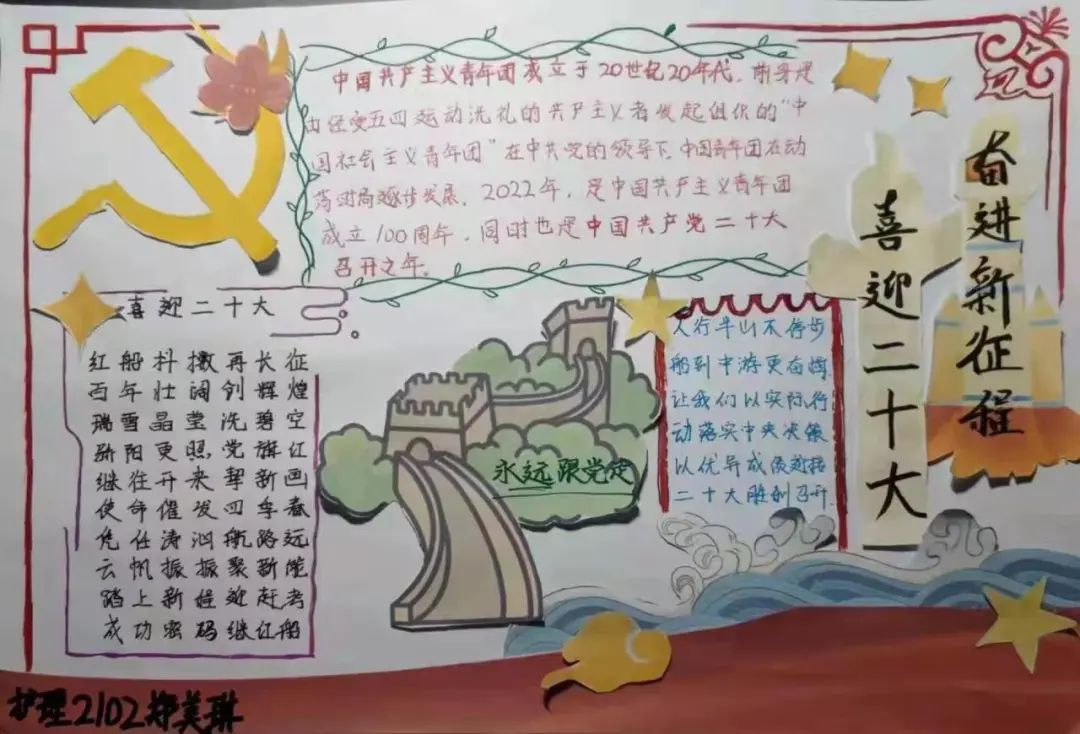 中国共产主义青年团成立于20世纪20年代,前身是
由经受五四运动洗礼的共产主义者发起组织的"中
国社会主义青年团"在中共党的领导下,中国青年团在动
荡时局逐步发展。2022年,是中国共产主义青年团
成立100周年,同时也是中国共产党二十大
召开之年。
奋进新征程
喜迎二十大
喜迎二十大
红船抖擞再长征
百年壮阔创辉煌
瑞雪晶莹洗碧空
骄阳更照党旗红
继往开来挈新画
使命催发四季春
凭任涛汹航路远
云帆振振聚新能
踏上新程迎赶考
成功密码继红船
永远跟党走
人行半山不停步
船到中游更奋楫
让我们以实际行
动落实中央决策
以优异成绩迎接
二十大胜利召开
护理2102郑美琳